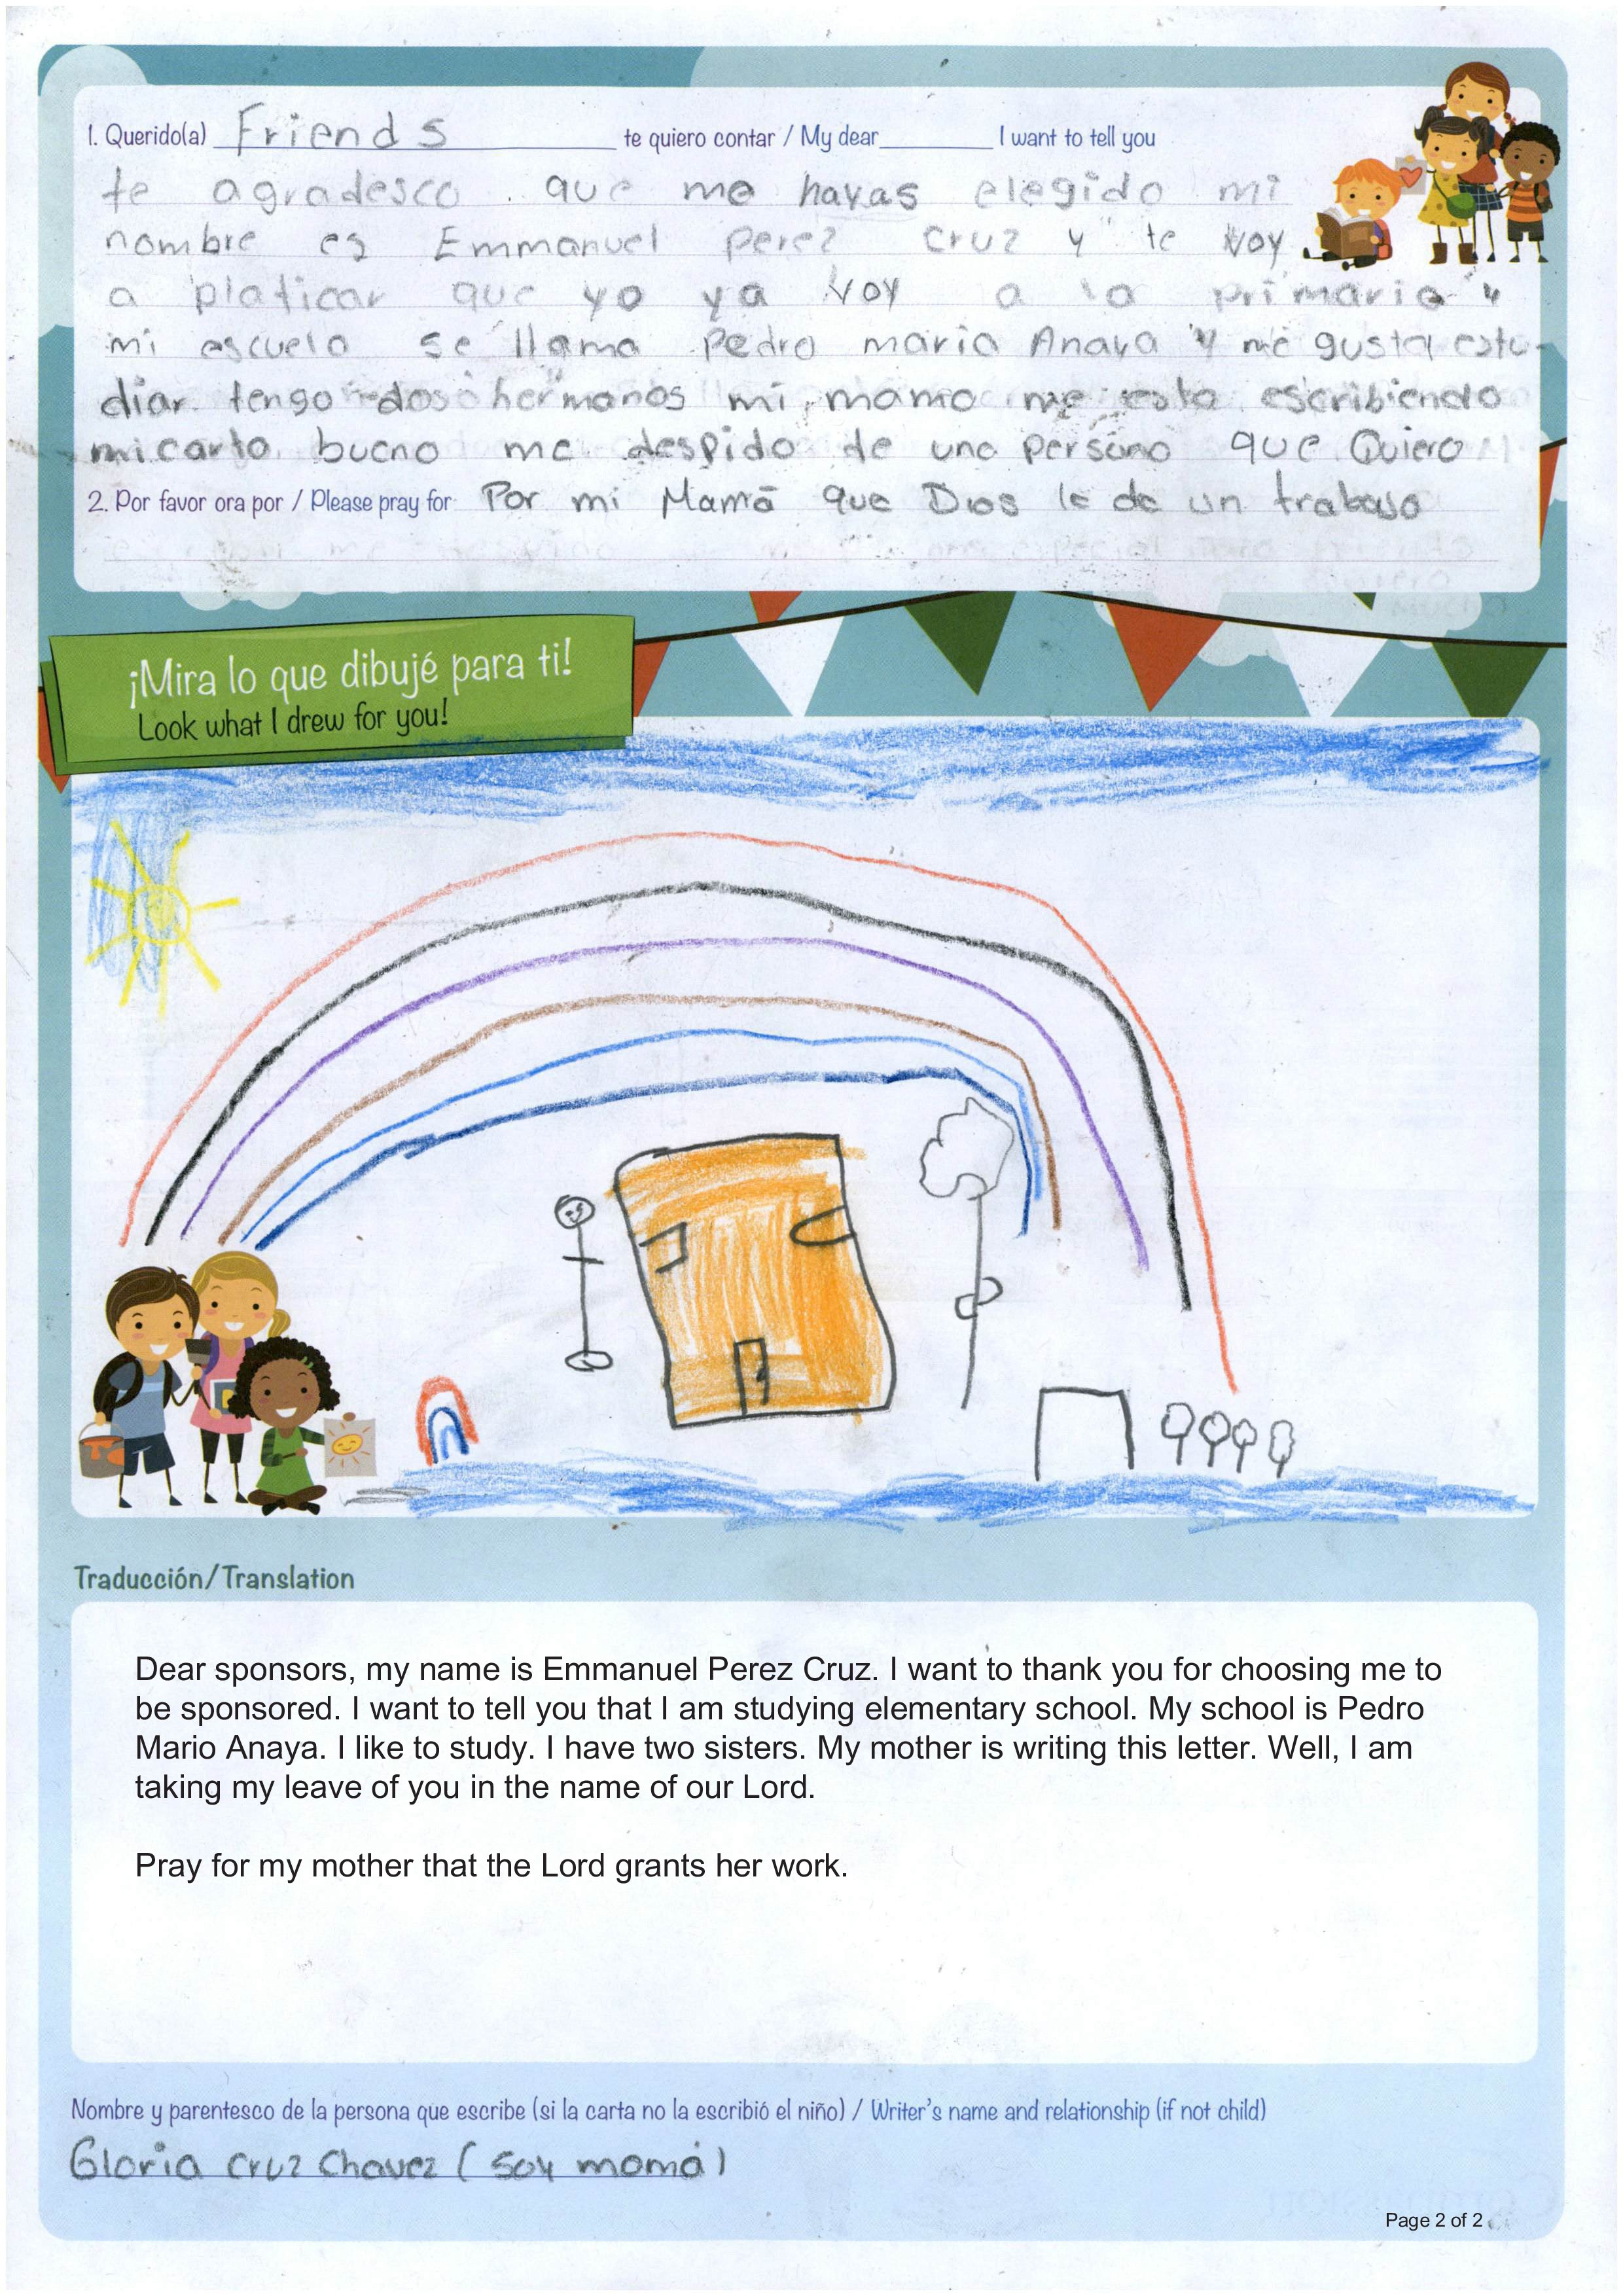 1. Querido(a) Friends te quiero contar / My dear I want to tell you
te agradesco que me hayas elegido mi
nombre es Emmanuel perez cruz y te voy
a platicar que yo ya voy a la primaria y
mi escuela se llama Pedro maria Anaya y me gusta estu-
diar tengo dos hermanos mi mama me esta escribiendo
mi carta bueno me despido de una persona que Quiero
2. Por favor ora por / Please pray for: Por mi Mamá que Dios le de un trabajo
¡Mira lo que dibujé para ti!
Look what I drew for you!
Traducción/Translation
Dear sponsors, my name is Emmanuel Perez Cruz. I want to thank you for choosing me to
be sponsored. I want to tell you that I am studying elementary school. My school is Pedro
Mario Anaya. I like to study. I have two sisters. My mother is writing this letter. Well, I am
taking my leave of you in the name of our Lord.
Pray for my mother that the Lord grants her work.
Nombre y parentesco de la persona que escribe (si la carta no la escribió el niño) / Writer's name and relationship (if not child)
Gloria Cruz Chavez ( soy mamá )
Page 2 of 2